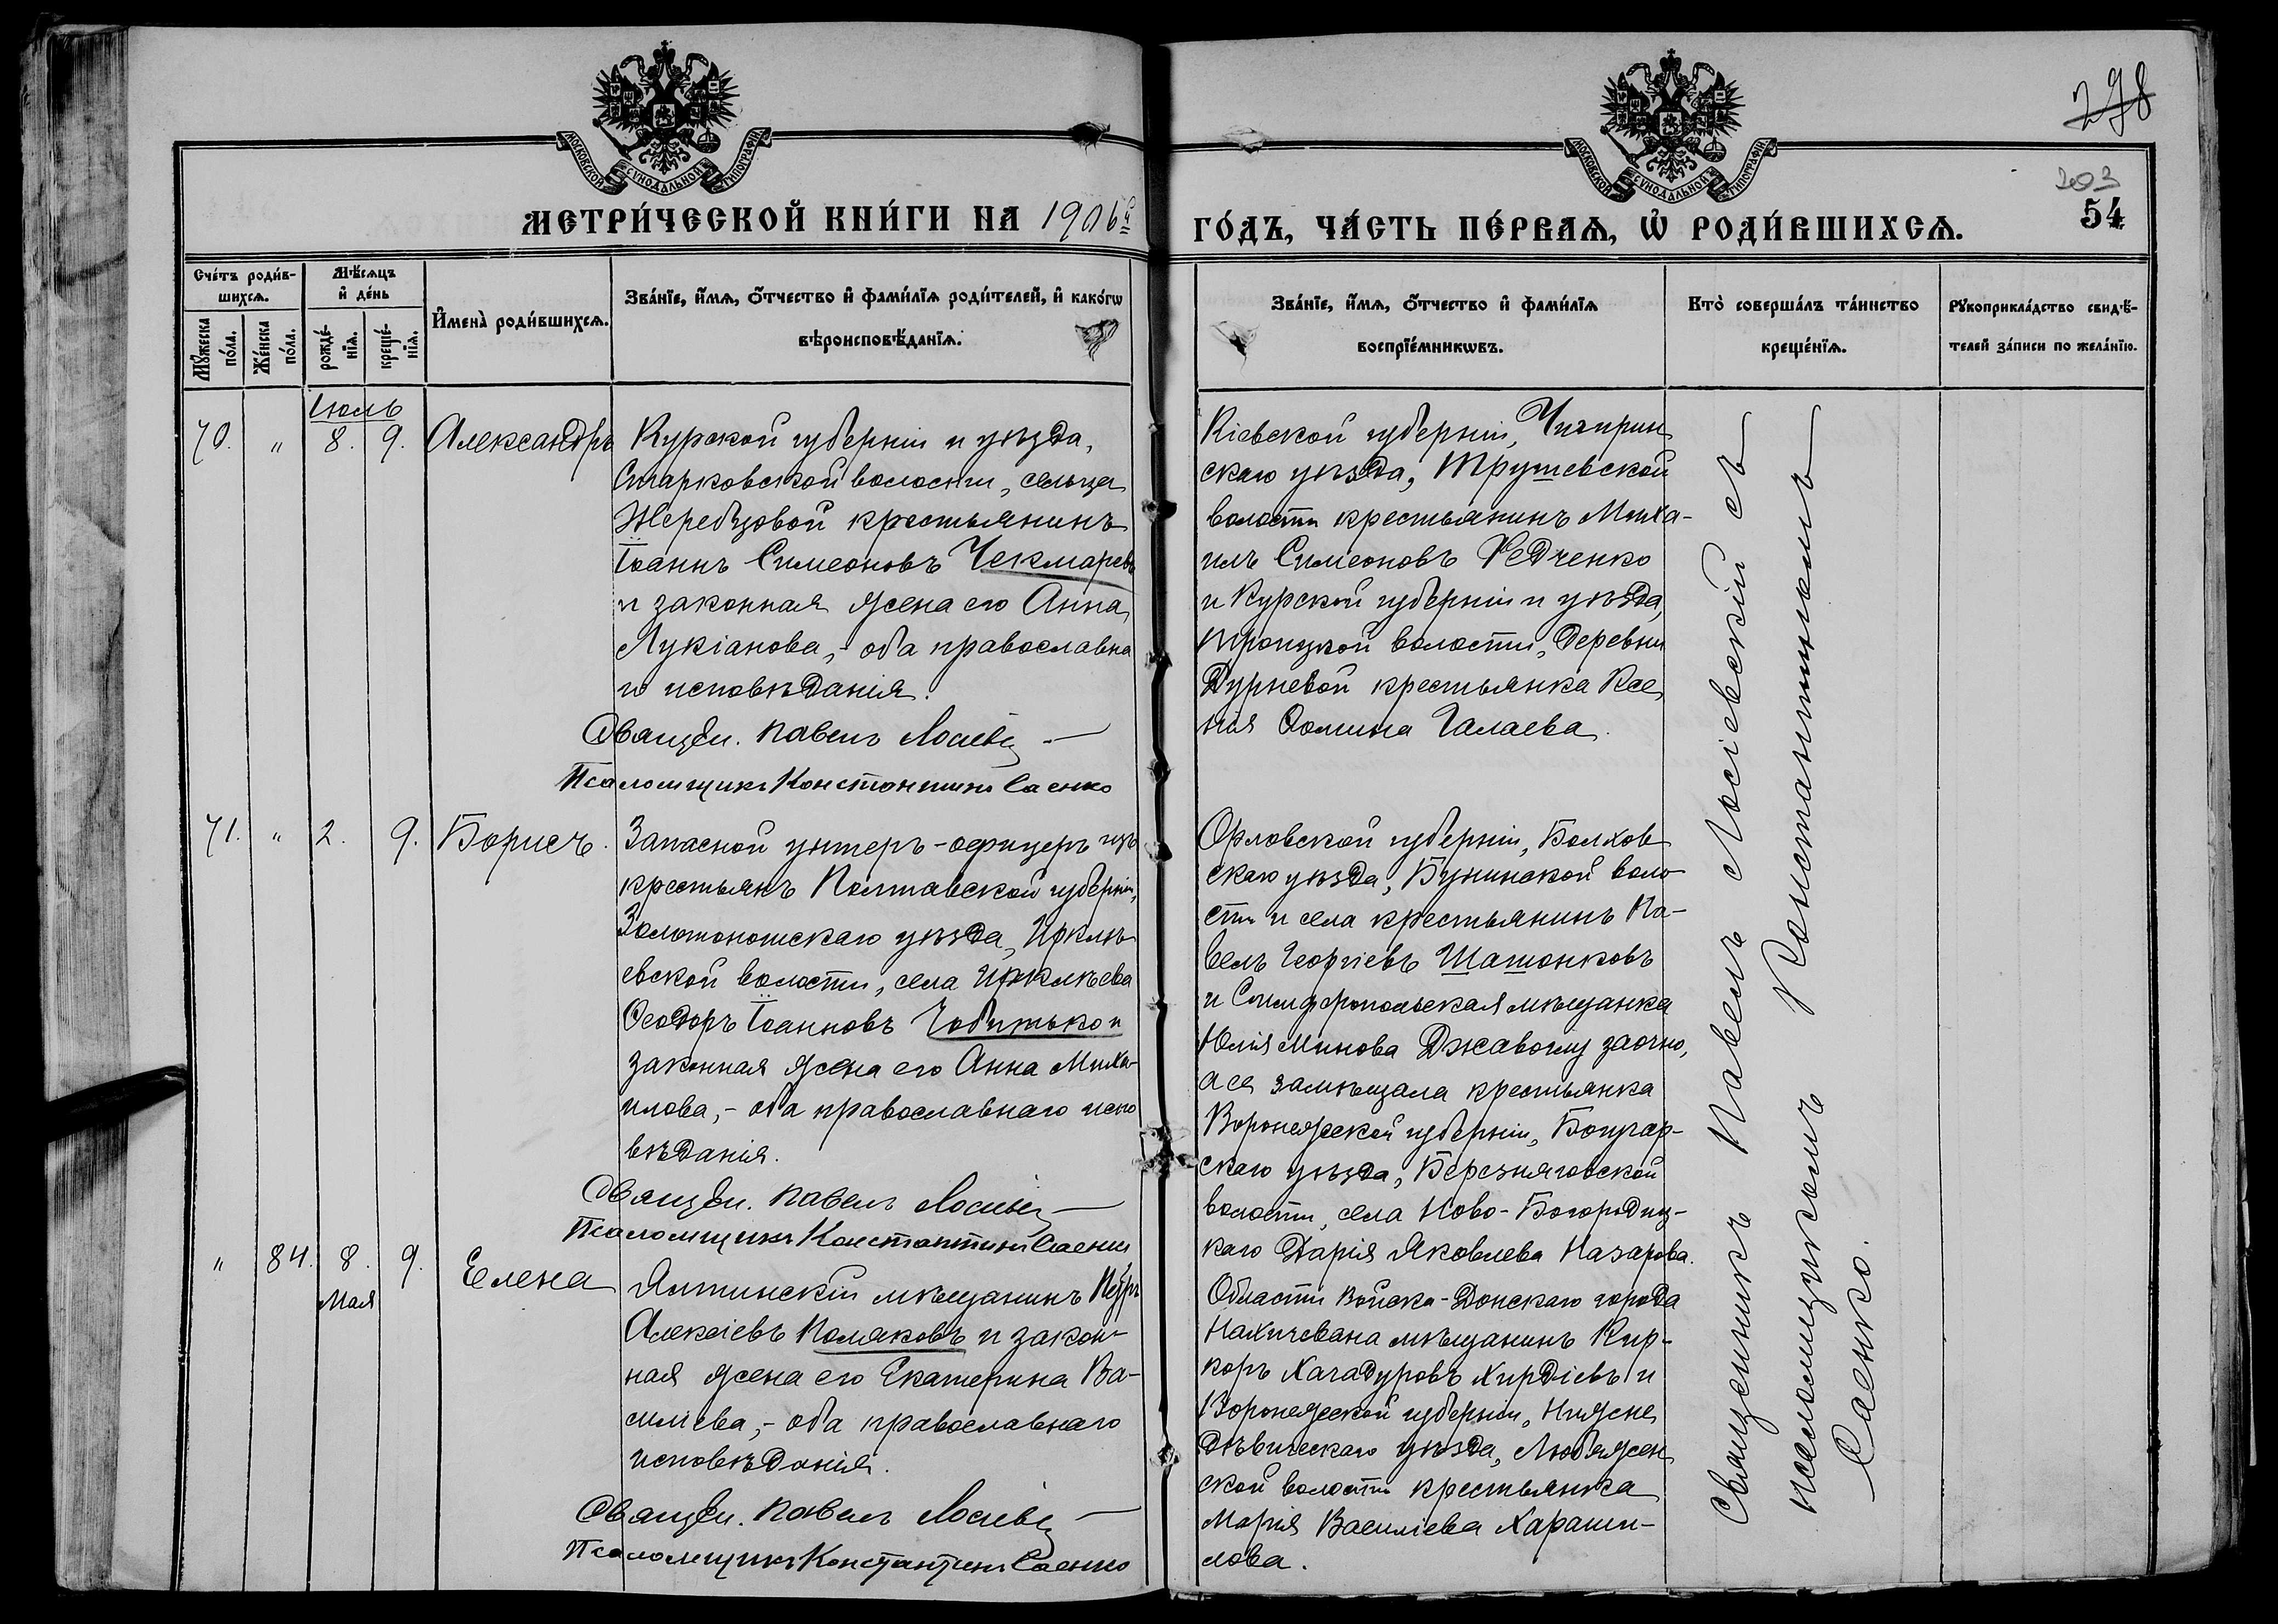 278
203
54
МОСКОВСКОЙ СѴНОДАЛЬНОЙ ТИПОГРАФІИ
МОСКОВСКОЙ СѴНОДАЛЬНОЙ ТИПОГРАФІИ
МЕТРИ́ЧЕСКОЙ КНИ́ГИ НА 1906й
ГО́ДЪ, ЧА́СТЬ ПЕ́РВАѦ, Ѽ РОДИ́ВШИХСѦ.
Сче́тъ роди́в-
шихсѧ.
Мꙋ́жеска
по́ла.
Же́нска
по́ла.
Мѣ́сѧцъ
и҆ де́нь
рожде́-
нїѧ.
креще́-
нїѧ.
И҆мена̀ роди́вшихсѧ.
Зва́нїе, и҆́мѧ, ѻ҆́тчество и҆ фами́лїѧ роди́телей, и҆ како́гѡ
вѣроисповѣ́данїѧ.
Зва́нїе, и҆́мѧ, ѻ҆́тчество и҆ фами́лїѧ
воспрїе́мникѡвъ.
Кто̀ соверша́лъ та́инство
креще́нїѧ.
Рꙋкоприкла́дство свидѣ́-
телей за́писи по жела́нїю.
Іюль
70. " 8. 9. Александръ
Курской губерніи и уѣзда,
Старковской волости, сельца
Жеребцовой крестьянинъ
Іоаннъ Симеоновъ Чекмаревъ
и законная жена его Анна
Лукіанова, - оба православна
го исповѣданія.
Священ. Павелъ Лосіевскій
Псаломщикъ Константинъ Саенко
Кіевской губерніи, Чигирин
скаго уѣзда, Трушевской
волости крестьянинъ Миха-
илъ Симеоновъ Редченко
и Курской губерніи и уѣзда,
Троицкой волости, деревни
Дурневой крестьянка Ксе
нія Ѳомина Галаева.
71. " 2. 9. Борисъ.
Запасной унтеръ-офицеръ изъ
крестьянъ Полтавской губерніи,
Золотоношскаго уѣзда, Иркль
евской волости, села Ирклѣева
Ѳеодоръ Іоанновъ Чобитько и
законная жена его Анна Миха-
илова, - оба православнаго испо
вѣданія.
Священ. Павелъ Лосіевскій
Псаломщикъ Константинъ Саенко
Орловской губерніи, Болхов
скаго уѣзда, Бунинской воло
сти и села крестьянинъ Па-
велъ Георгіевъ Шатонковъ
и Симферопольская мѣщанка
Юлія Минова заочно,
а ея замѣщала крестьянка
Воронежской губерніи, Богучар-
скаго уѣзда, Березняговской
волости, села Ново-Богородиц-
каго Дарія Яковлева Назарова.
" 84. 8. 9. Елена
Мая
Ялтинскій мѣщанинъ Петръ
Алексіевъ Поляковъ и закон-
ная жена его Екатерина Ва-
силіева, - оба православнаго
исповѣданія.
Священ. Павелъ Лосіевскій
Псаломщикъ Константинъ Саенко
Области Войска-Донскаго города
Нахичевана мѣщанинъ Кир-
коръ Хачадуровъ Хирдіевъ и
Воронежской губерніи, Нижне
дѣвическаго уѣзда,
ской волости крестьянка
Марія Василіева Харани-
лова.
Священникъ Павелъ Лосіевскій съ
псаломщикомъ Константиномъ
Саенко.